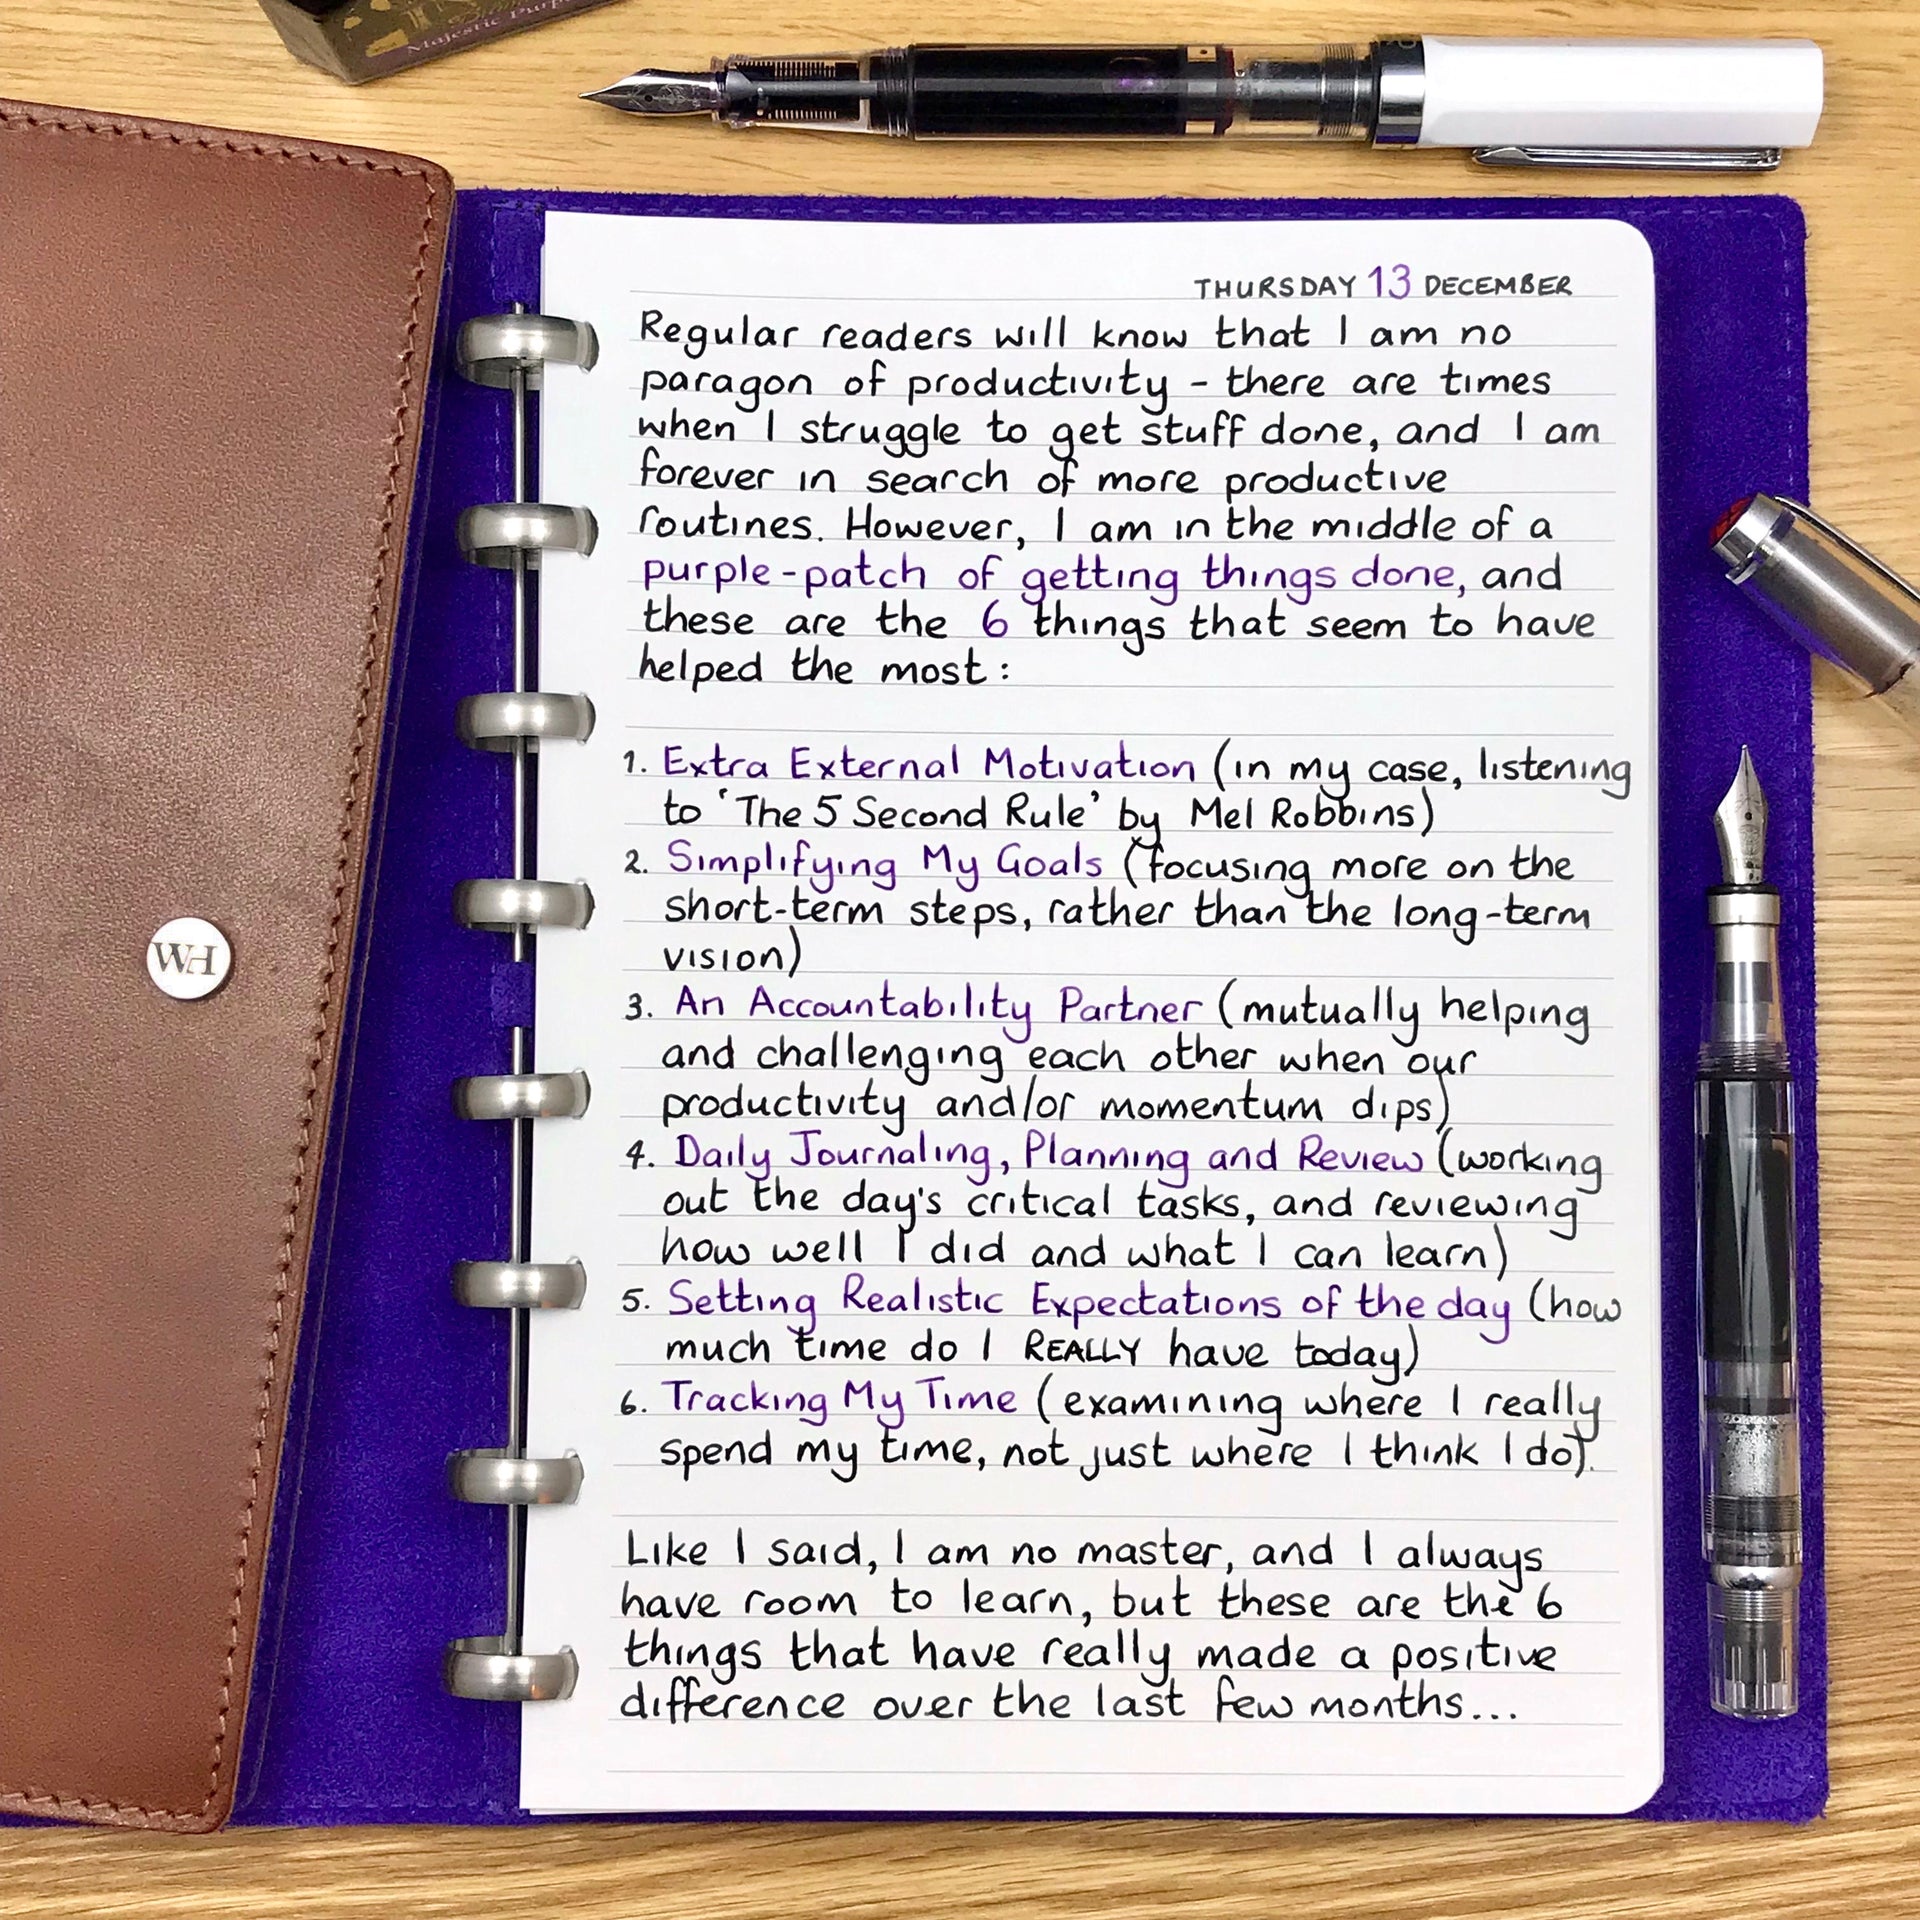 Majestic Purp
WH
THURSDAY 13 DECEMBER
Regular readers will know that I am no
paragon of productivity - there are times
when I struggle to get stuff done, and I am
forever in search of more productive
routines. However, I am in the middle of a
purple-patch of getting things done, and
these are the 6 things that seem to have
helped the most:
1. Extra External Motivation (in my case, listening
to 'The 5 Second Rule' by Mel Robbins)
2. Simplifying My Goals (focusing more on the
short-term steps, rather than the long-term
vision)
3. An Accountability Partner (mutually helping
and challenging each other when our
productivity and/or momentum dips)
4. Daily Journaling, Planning and Review (working
out the day's critical tasks, and reviewing
how well I did and what I can learn)
5. Setting Realistic Expectations of the day (how
much time do I REALLY have today)
6. Tracking My Time (examining where I really
spend my time, not just where I think I do).
Like I said, I am no master, and I always
have room to learn, but these are the 6
things that have really made a positive
difference over the last few months...